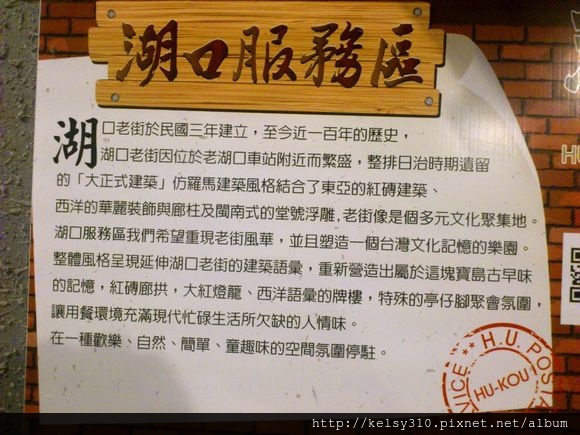 湖口服務區
湖口老街於民國三年建立，至今近一百年的歷史，
湖口老街因位於老湖口車站附近而繁盛，整排日治時期遺留
的「大正式建築」仿羅馬建築風格結合了東亞的紅磚建築、
西洋的華麗裝飾與廊柱及閩南式的堂號浮雕,老街像是個多元文化聚集地。
湖口服務區我們希望重現老街風華，並且塑造一個台灣文化記憶的樂園。
整體風格呈現延伸湖口老街的建築語彙，重新營造出屬於這塊寶島古早味
的記憶，紅磚廊拱，大紅燈籠、西洋語彙的牌樓，特殊的亭仔腳聚會氛圍，
讓用餐環境充滿現代忙碌生活所欠缺的人情味。
在一種歡樂、自然、簡單、童趣味的空間氛圍停駐。
H.U. POS
VICE
HU-KOU
HU
http://kelsy310.pixnet.net/album